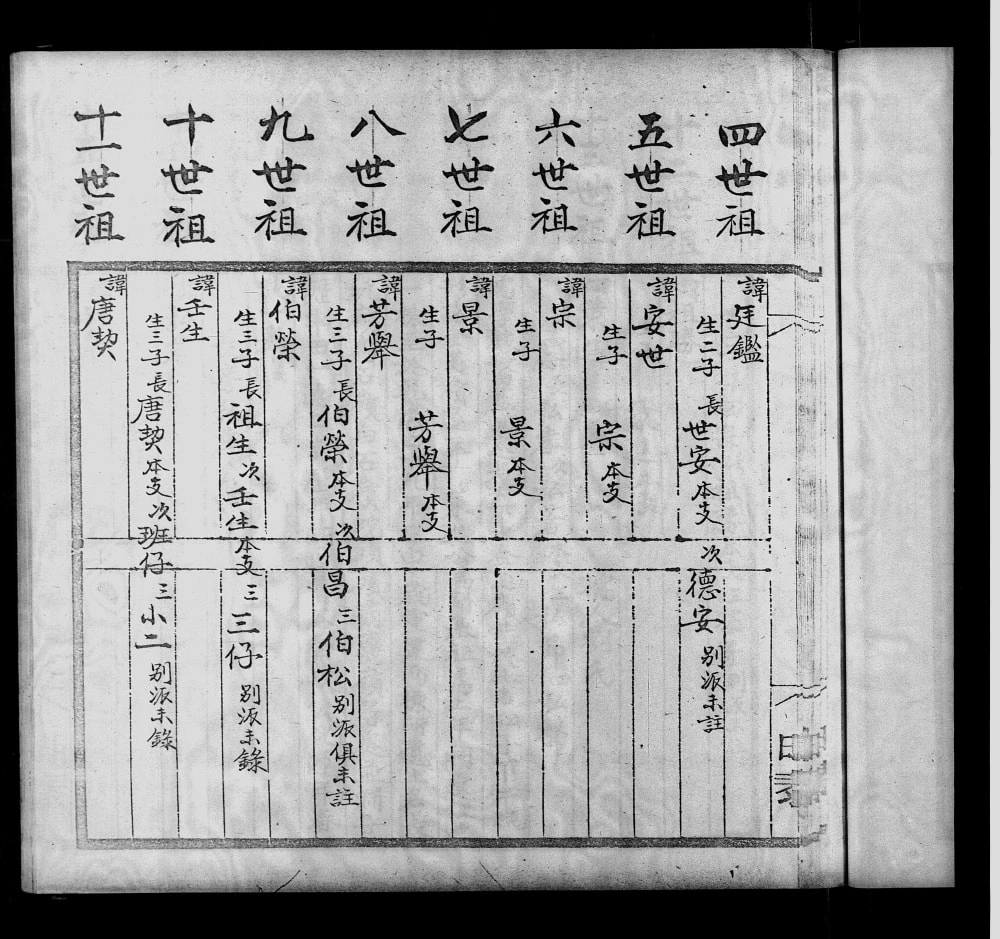 四世祖
諱廷鑑
生二子 長世安本支 次德安別派未註
五世祖
諱安世
生子 宗本支
六世祖
諱宗
生子 景本支
七世祖
諱景
生子 芳舉本支
八世祖
諱芳舉
生三子長伯榮本支 次伯昌 三伯松別派俱未註
九世祖
諱伯榮
生三子長祖生次壬生本支三三仔別派未錄
十世祖
諱壬生
生三子長唐契本支次班仔三小二別派未錄
十一世祖
諱唐契